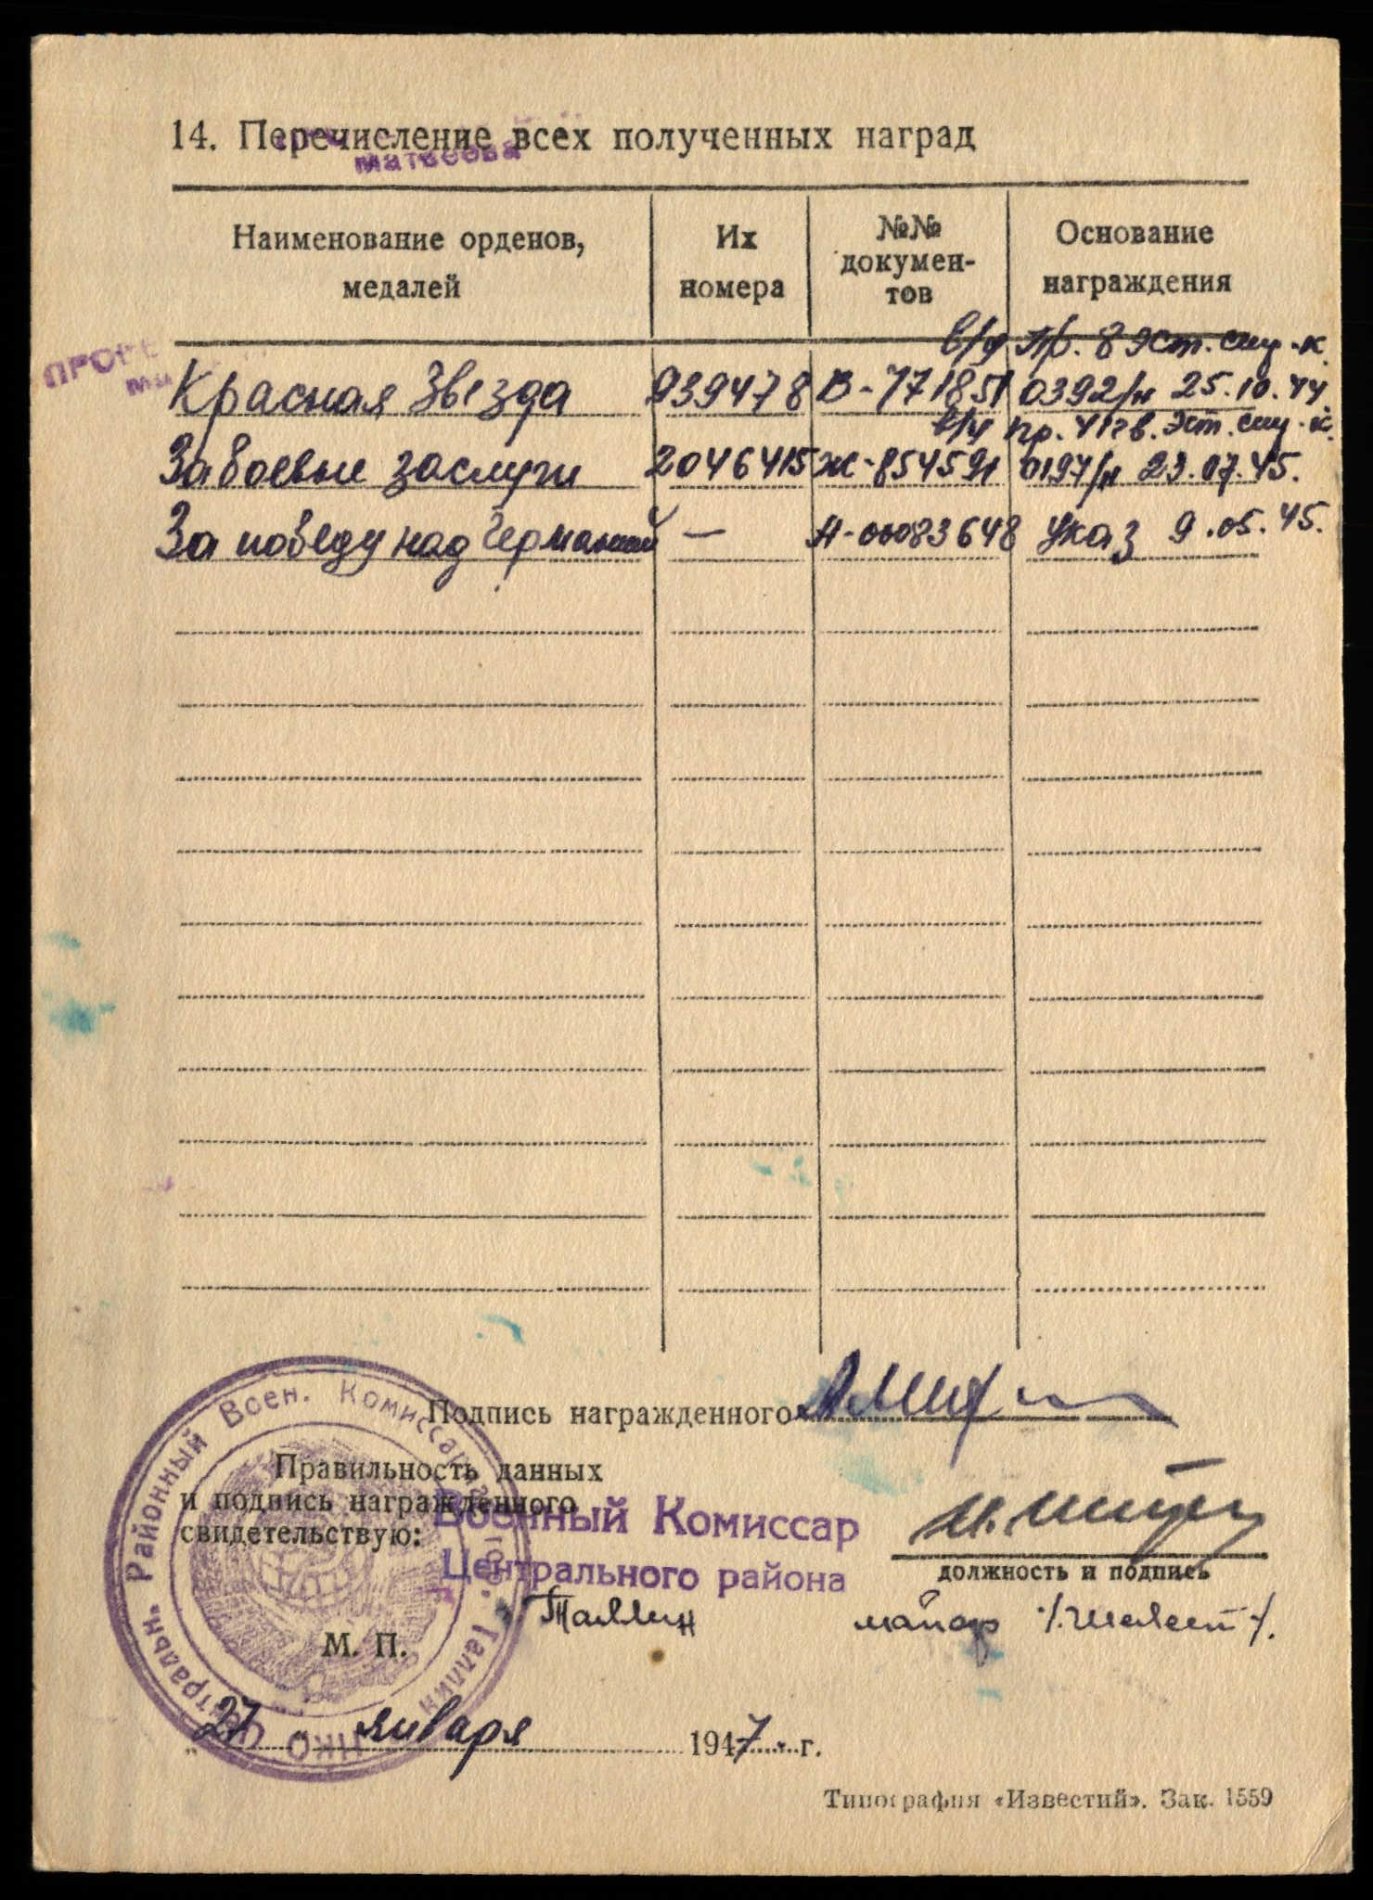 14. Перечисление всех полученных наград
матвеева
Наименование орденов, медалей
Их номера
№№ докумен-
тов
Основание награждения
в/ч пр. 8 Эст. стр. к.
Красная Звезда 939478 В-771851 0392/н 25.10.44
в/ч пр. 41 гв. Эст. стр. к.
За боевые заслуги 2046415 Ж-854591 0197/н 23.07.45.
За победу над Германией — А-00083648 Указ 9.05.45.
Подпись награжденного
Правильность данных
и подпись награжденного
свидетельствую:
Военный Комиссар
Центрального района
Таллин
должность и подпись
майор
М. П.
Районный Воен. Комиссар
Таллин
НКО
27 января 1947 г.
Типография «Известий». Зак. 1559